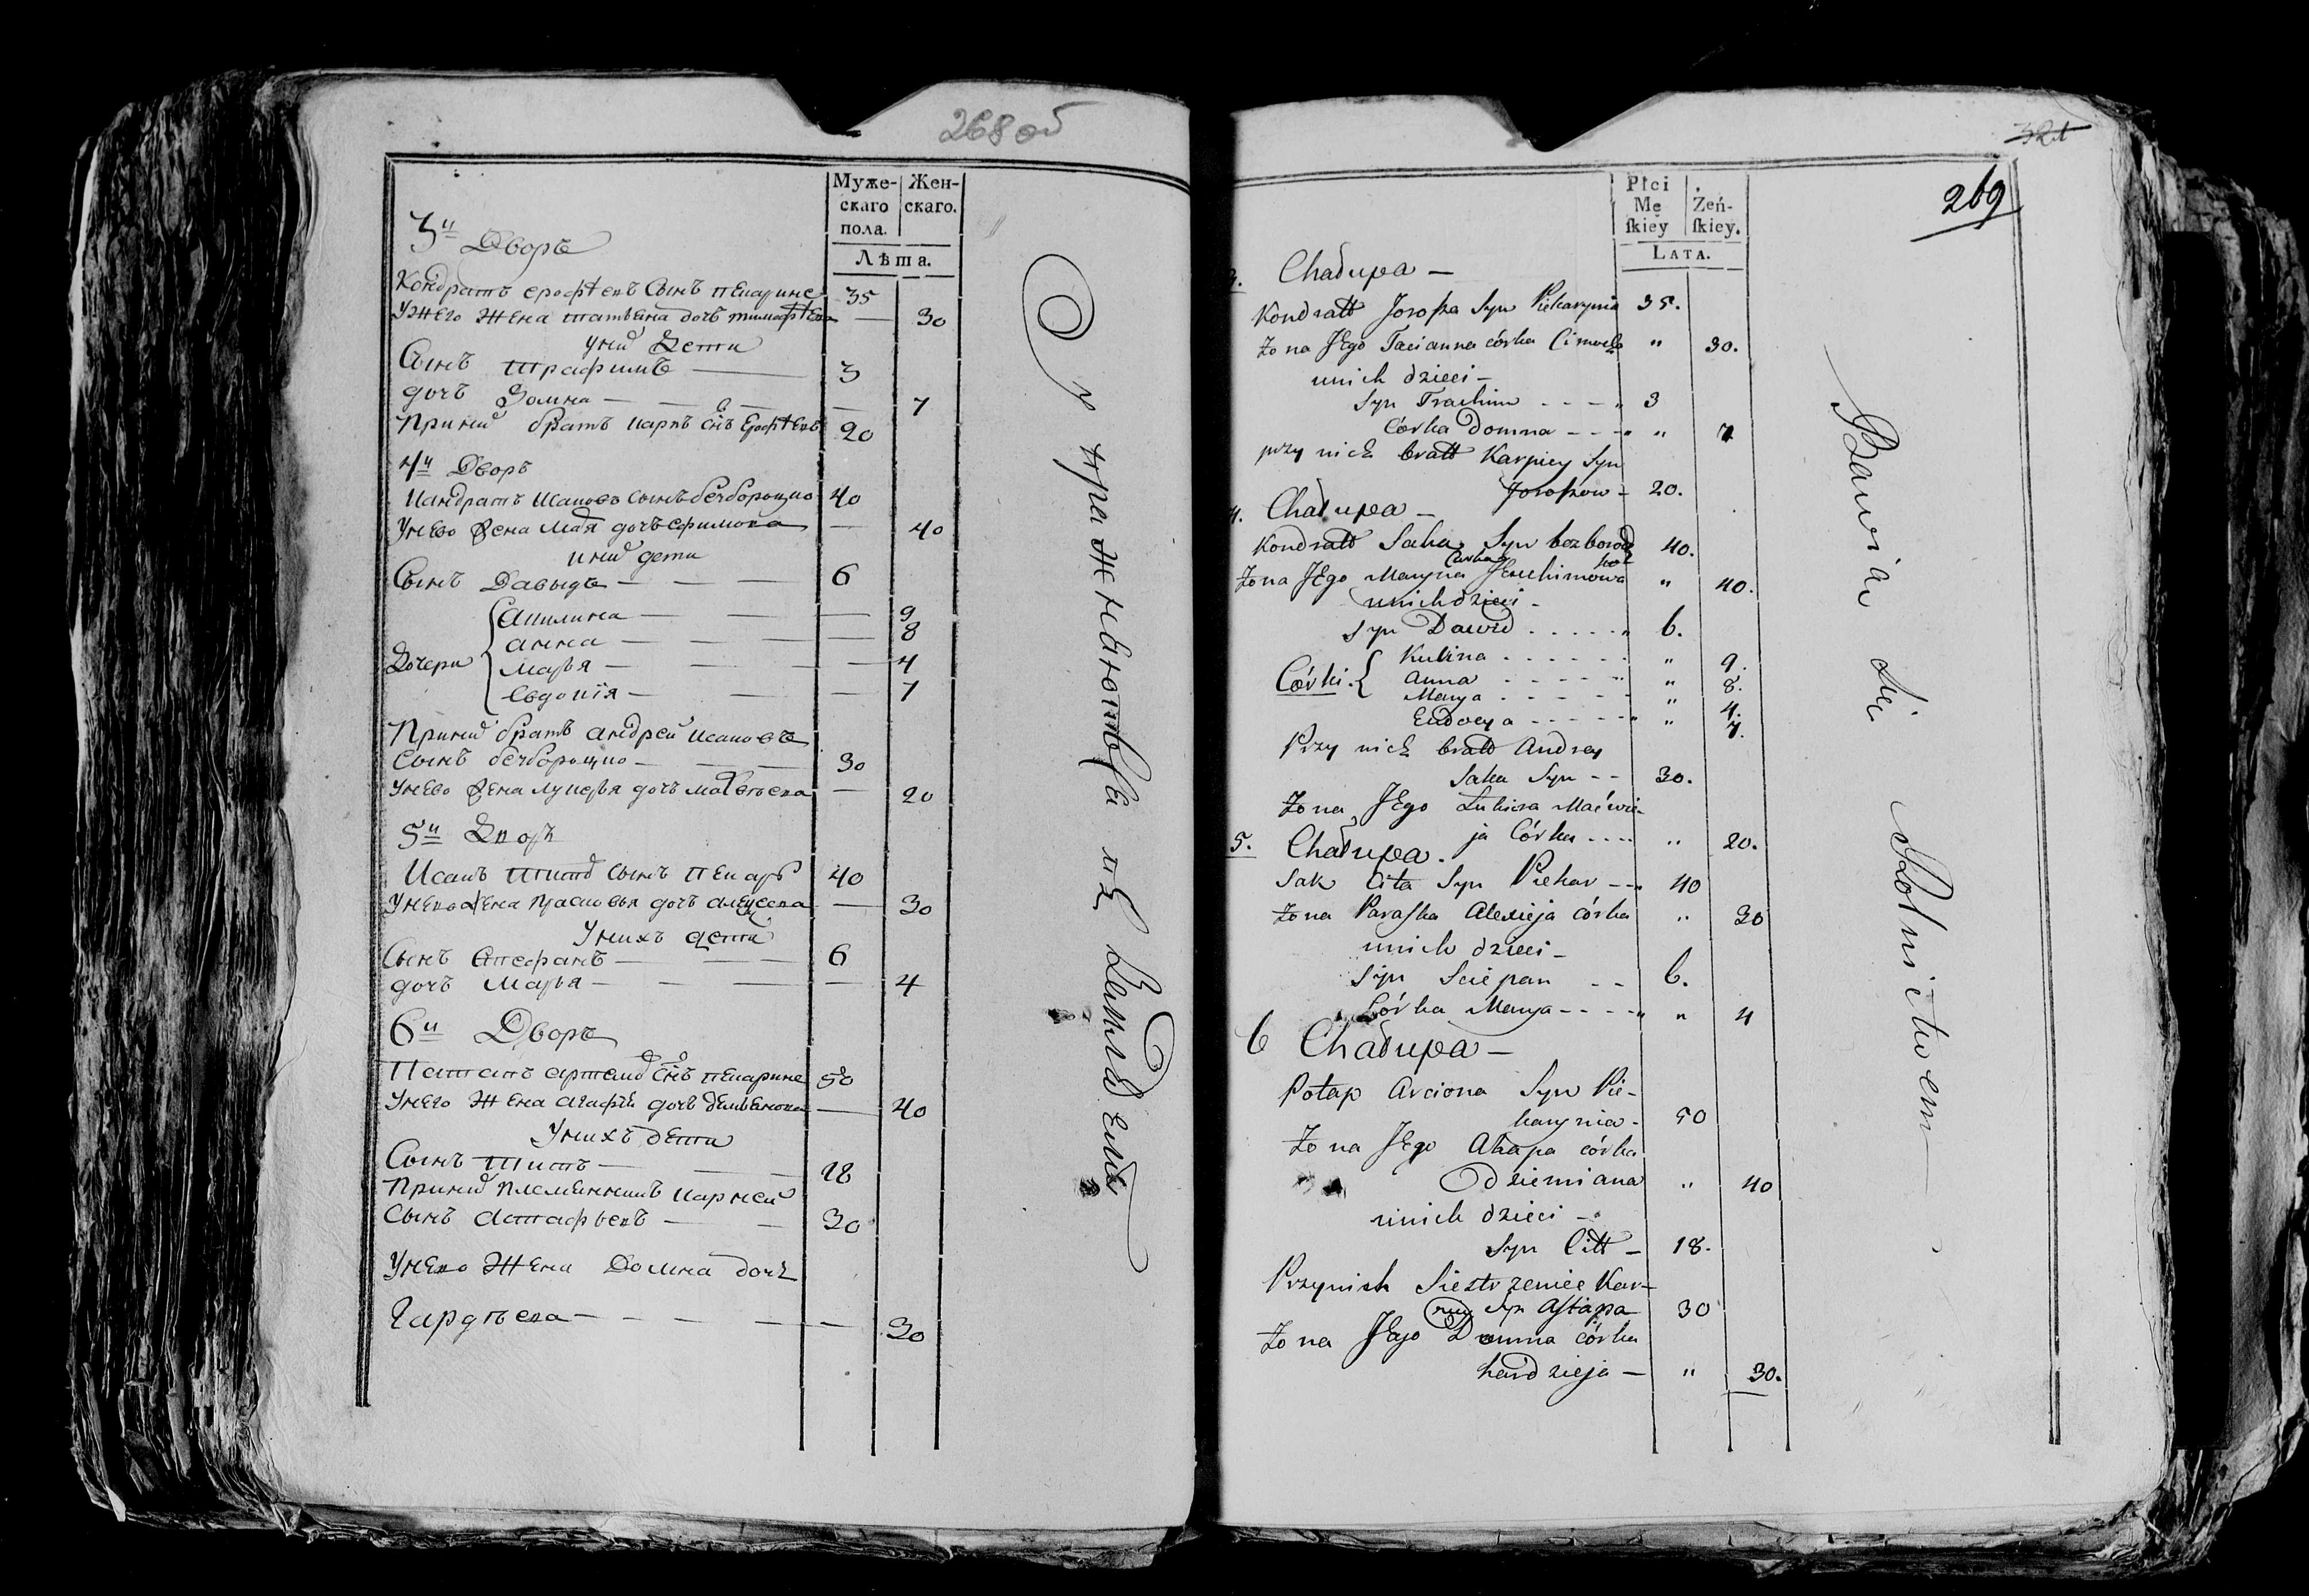 268 об
Муже-
скаго
пола.
Жен-
скаго.
Лѣта.
3й Дворъ
Кондратъ ерофѣевъ Сынъ пекарине 35
Унего жена татьяна дочь тимофѣева — 30
уних Дети
Сынъ трафимъ — 3
дочь Домна — — — 7
При них братъ карпъ снъ Ерофѣевъ 20
4й Дворъ
Кандратъ Исаковъ сынъ безбородко 40
Унево жена Мария дочь ефимова — 40
уних дети
Сынъ Давыдъ — — — 6
Дочери
Акилина — — — 9
анна — — — — 8
Марья — — — 4
Евдокія — — — 7
При них братъ андрей исаковъ
Сынъ безбородко — — — 30
Унево жена лукерья дочь матвѣева — 20
5й Дворъ
Исакъ титов сынъ пекарь 40
Унево жена Прасковья дочь алексеева — 30
Унихъ дети
Сынъ Стефанъ — — — 6
дочь Марья — — — — 4
6й Дворъ
Патапъ артемов снъ пекарине 50
Унего жена агафья дочь демьянова — 40
Унихъ дети
Сынъ титъ — — — 18
При них племянникъ карней
Сынъ Астафьевъ — — 30
Унево жена Домна дочь
Гардѣева — — — — — 30
Упражняются в Земледелии
321
269
Płci
Mę
ſkiey
Żeń-
ſkiey.
LATA.
3. Chałupa —
Kondratt Jorofka Syn Piekarynia 35.
Żona Jego Tacianna córka Cimocha " 30.
unich dzieci —
Syn Trachim - - - " 3
Córka Domna - - - " " 7
przy nich bratt Karpiey Syn
Jorofkow - 20.
4. Chałupa —
Kondratt Saka Syn bezborod
ko 40.
Żona Jego Maryna Córka Jeuchimowa " 40.
unich dzieci -
Syn Dawid . . . . . " 6.
Córki.
Kulina . . . . . . " 9.
Anna - - - - - " 8.
Marya - - - - - " 4.
Eudocya - - - - - " 7.
Przy nich bratt Andrey
Saka Syn - - 30.
Żona Jego Łukiera Maćwie-
ja Córka . . . . " 20.
5. Chałupa.
Sak Cita Syn Piekar - - 40
Żona Paraſka Alexieja córka " 30
unich dzieci -
Syn Sciepan - - 6.
Córka Marya - - - - " " 4
6 Chałupa —
Potap Arciona Syn Pie-
karynia - 50
Żona Jego Ahapa córka
Dziemiana " 40
unich dzieci -
Syn Citt - 18.
Przynich Siestrzeniec Kar-
ney Syn Aſtapa 30
Żona Jego Domna córka
hardzieja — " 30.
Bawią się Rolnictwem